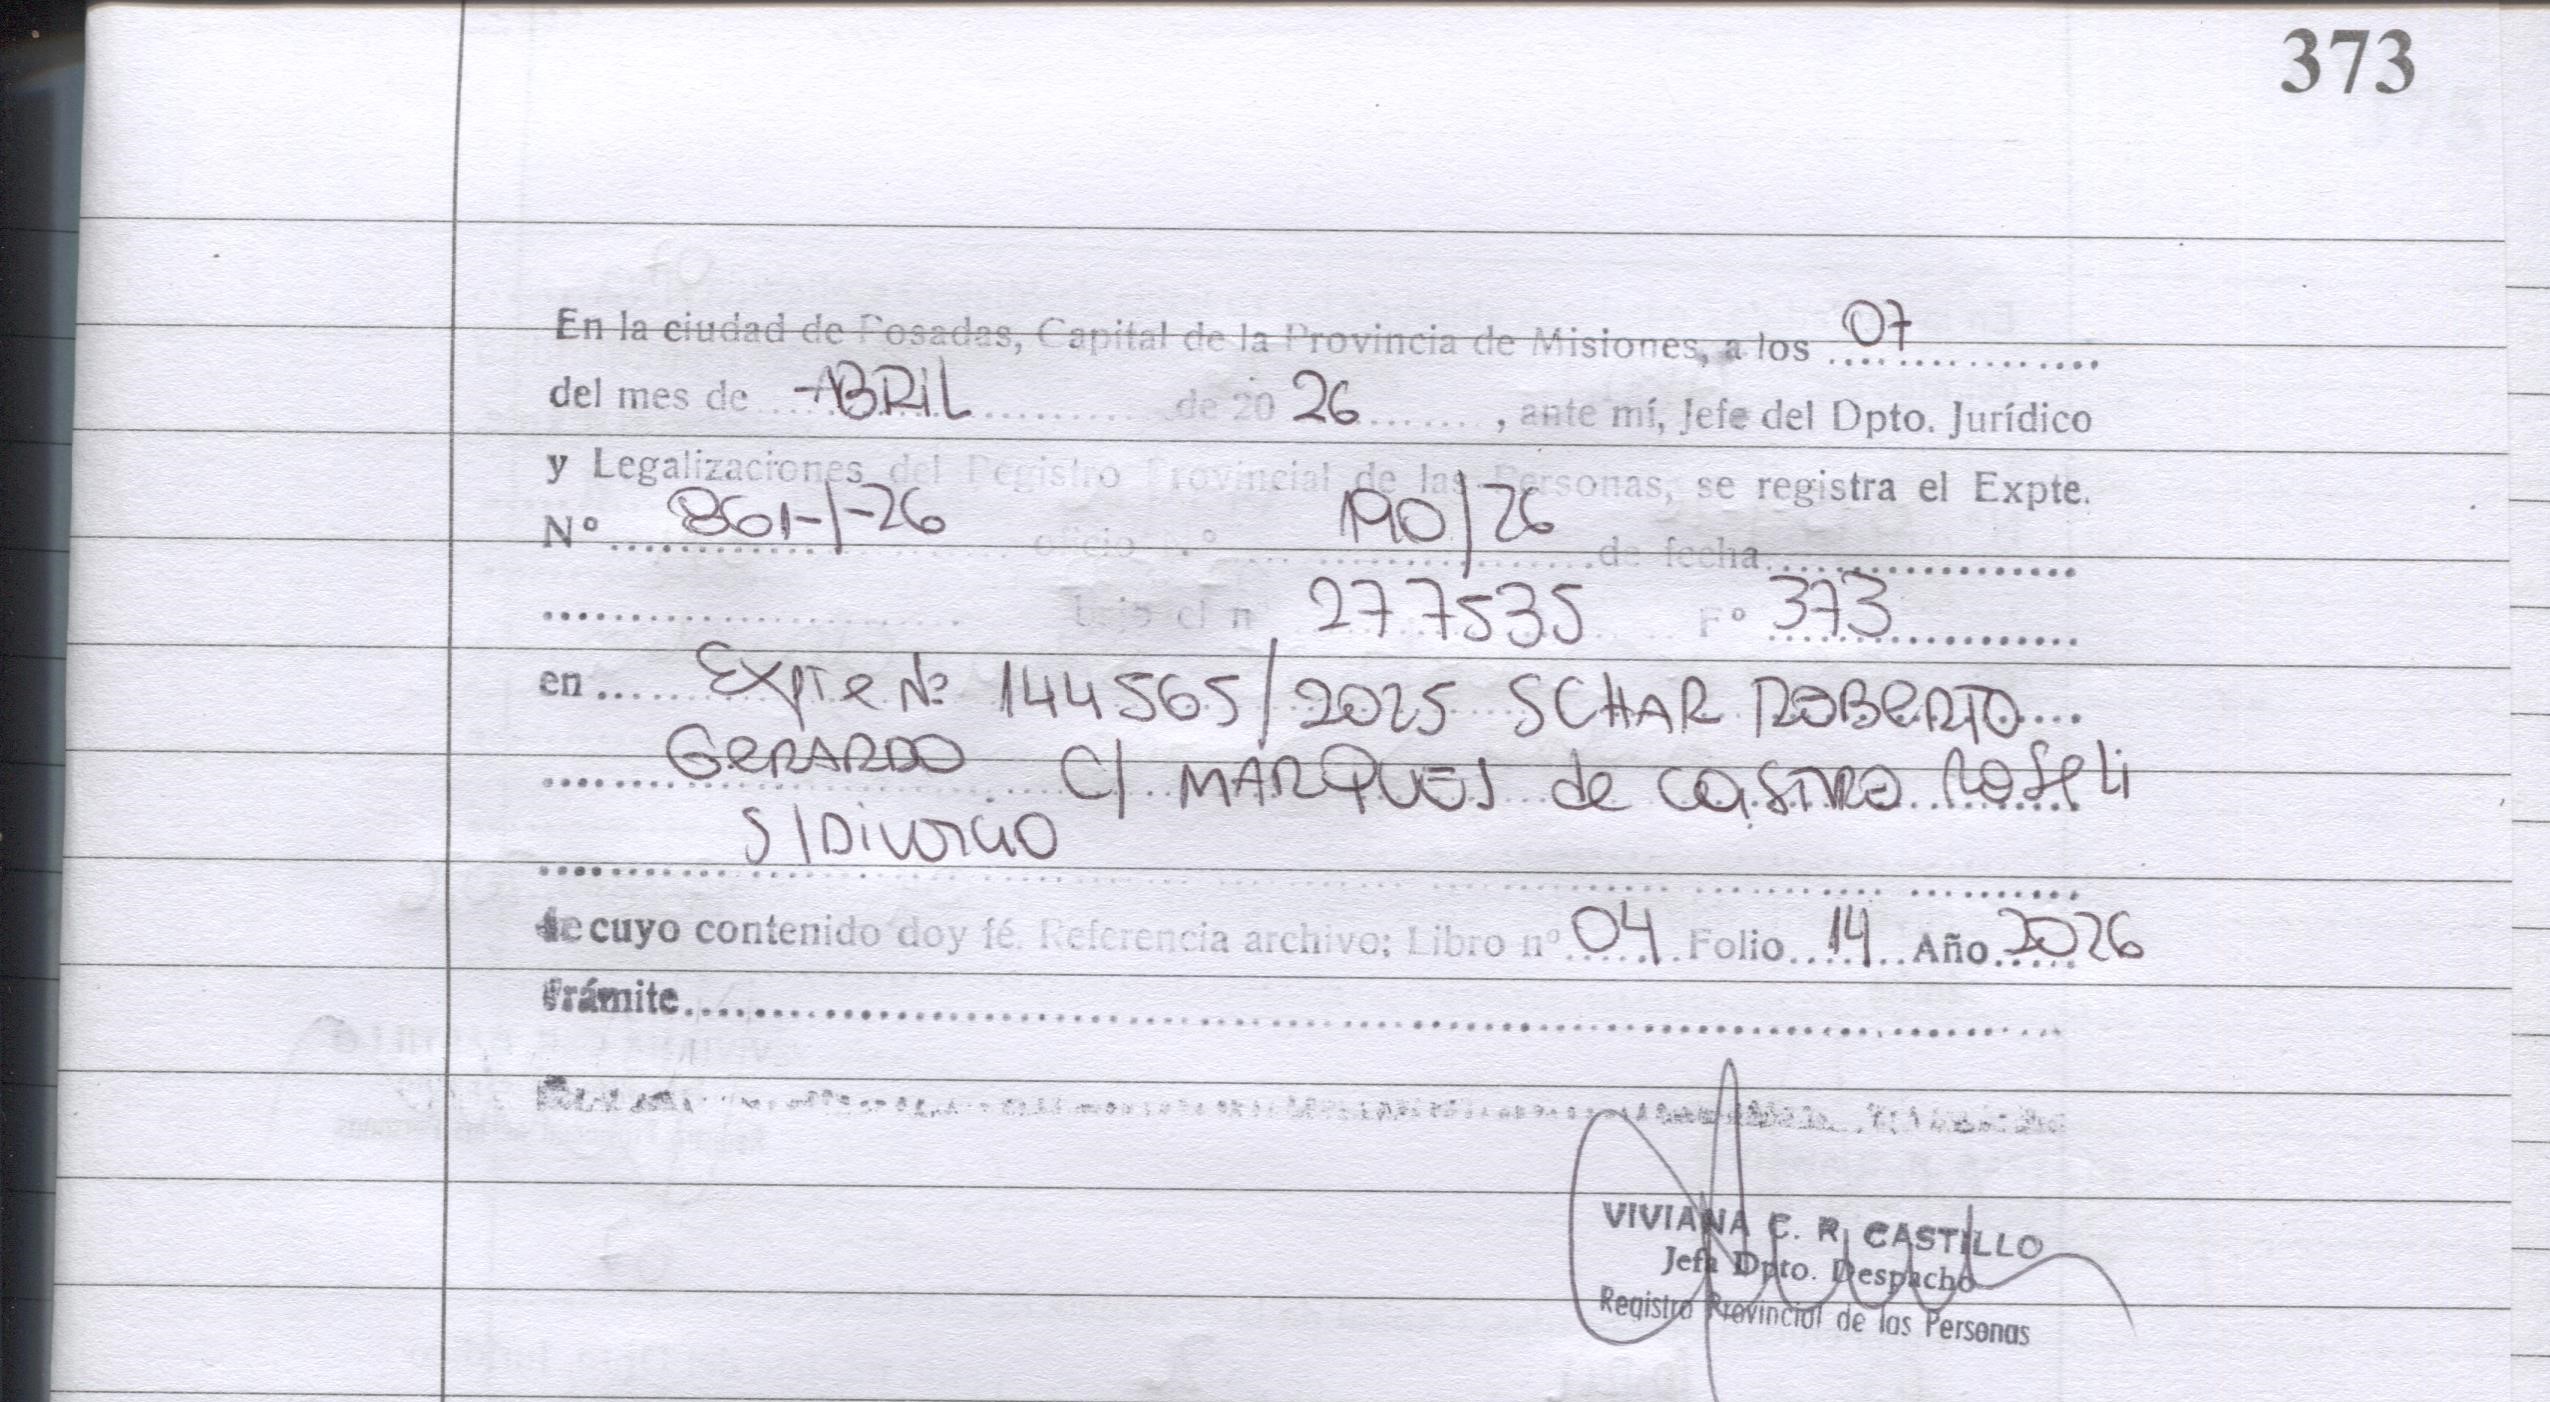 373
En la ciudad de Posadas, Capital de la Provincia de Misiones, a los 07
del mes de ABRIL de 20 26, ante mí, Jefe del Dpto. Jurídico
y Legalizaciones del Registro Provincial de las Personas, se registra el Expte.
Nº 861-/-26 oficio N.º 190/26 de fecha
bajo el n 277535 Fº 373
en Expte Nº 144565/2025 SCHAR ROBERTO
GERARDO C/ MARQUES de CASTRO ROSELI
S/DIVORCIO
de cuyo contenido doy fé. Referencia archivo: Libro nº 04 Folio 14 Año 2026
trámite
VIVIANA C. R. CASTILLO
Jefa Dpto. Despacho
Registro Provincial de las Personas